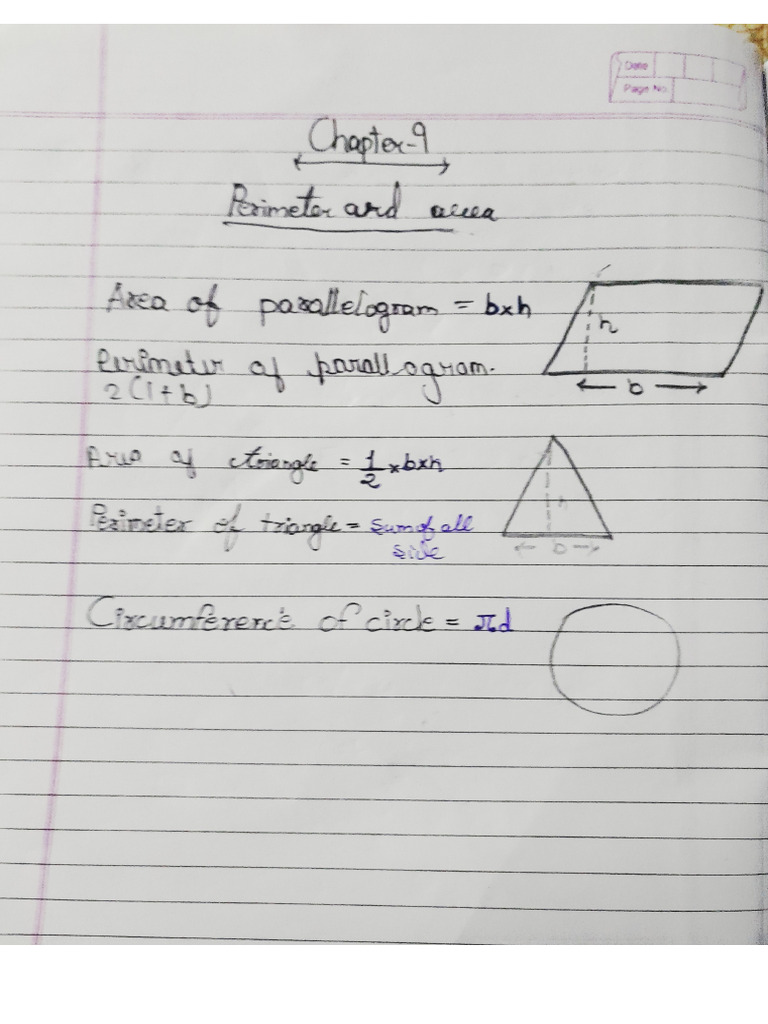 Date
Page No
Chapter-9
Perimeter and area
Area of parallelogram = b×h
h
Perimeter of parallogram.
b
2(l+b)
Area of triangle = 1/2 ×b×h
h
Perimeter of triangle = sum of all
side
b
Circumference of circle = πd